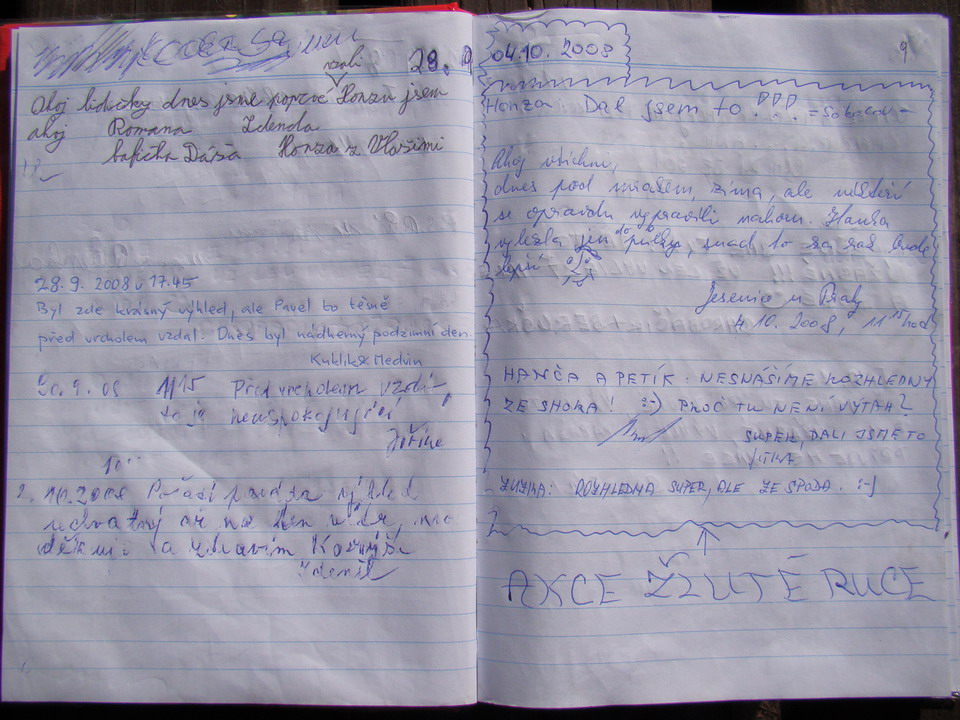 28. 9
vzali
Ahoj lidičky dnes jsme poprvé Honzu jsem
ahoj Romana Zdenda
babička Dáša Honza z Vlašimi
28.9. 2008 v 17.45
Byl zde krásný výhled, ale Pavel to těsně
před vrcholem vzdal. Dnes byl nádherný podzimní den.
Kuklík & Medvin
30.9.08 1115 Před vrcholem vzdal
to je neuspokojující
Jiřina
10
2. 10.2008 Počasí paráda výhled
úchvatný až na ten vítr,
děkuji a zdravím
Zdeněk
9
04.10. 2008
Honza: Dal jsem to
Ahoj všichni,
dnes pod mrakem, zima, ale někteří
se opravdu vypravili nahoru. Hanka
vylezla jen do půlky, snad to za rok bude
lepší
Jesenice u Prahy
4.10. 2008, 11 15 hod
HANČA A PETÍK: NESNÁŠÍME ROZHLEDNY
ZE SHORA! :-) PROČ TU NENÍ VÝTAH?
SUPER, DALI JSME TO
JITKA
ZUZKA: ROZHLEDNA SUPER, ALE ZE SPODA. :-)
AKCE ŽLUTÉ RUCE